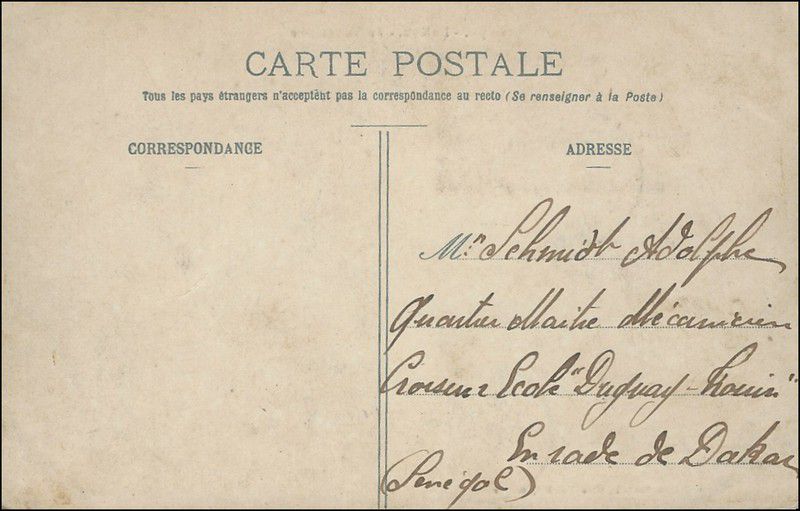 CARTE POSTALE
Tous les pays étrangers n'acceptent pas la correspondance au recto (Se renseigner à la Poste)
CORRESPONDANCE
ADRESSE
Mr Schmidt Adolphe
Quartier Maitre Mécanicien
Croiseur Ecole "Duguay-Trouin"
En rade de Dakar
(Sénégal)